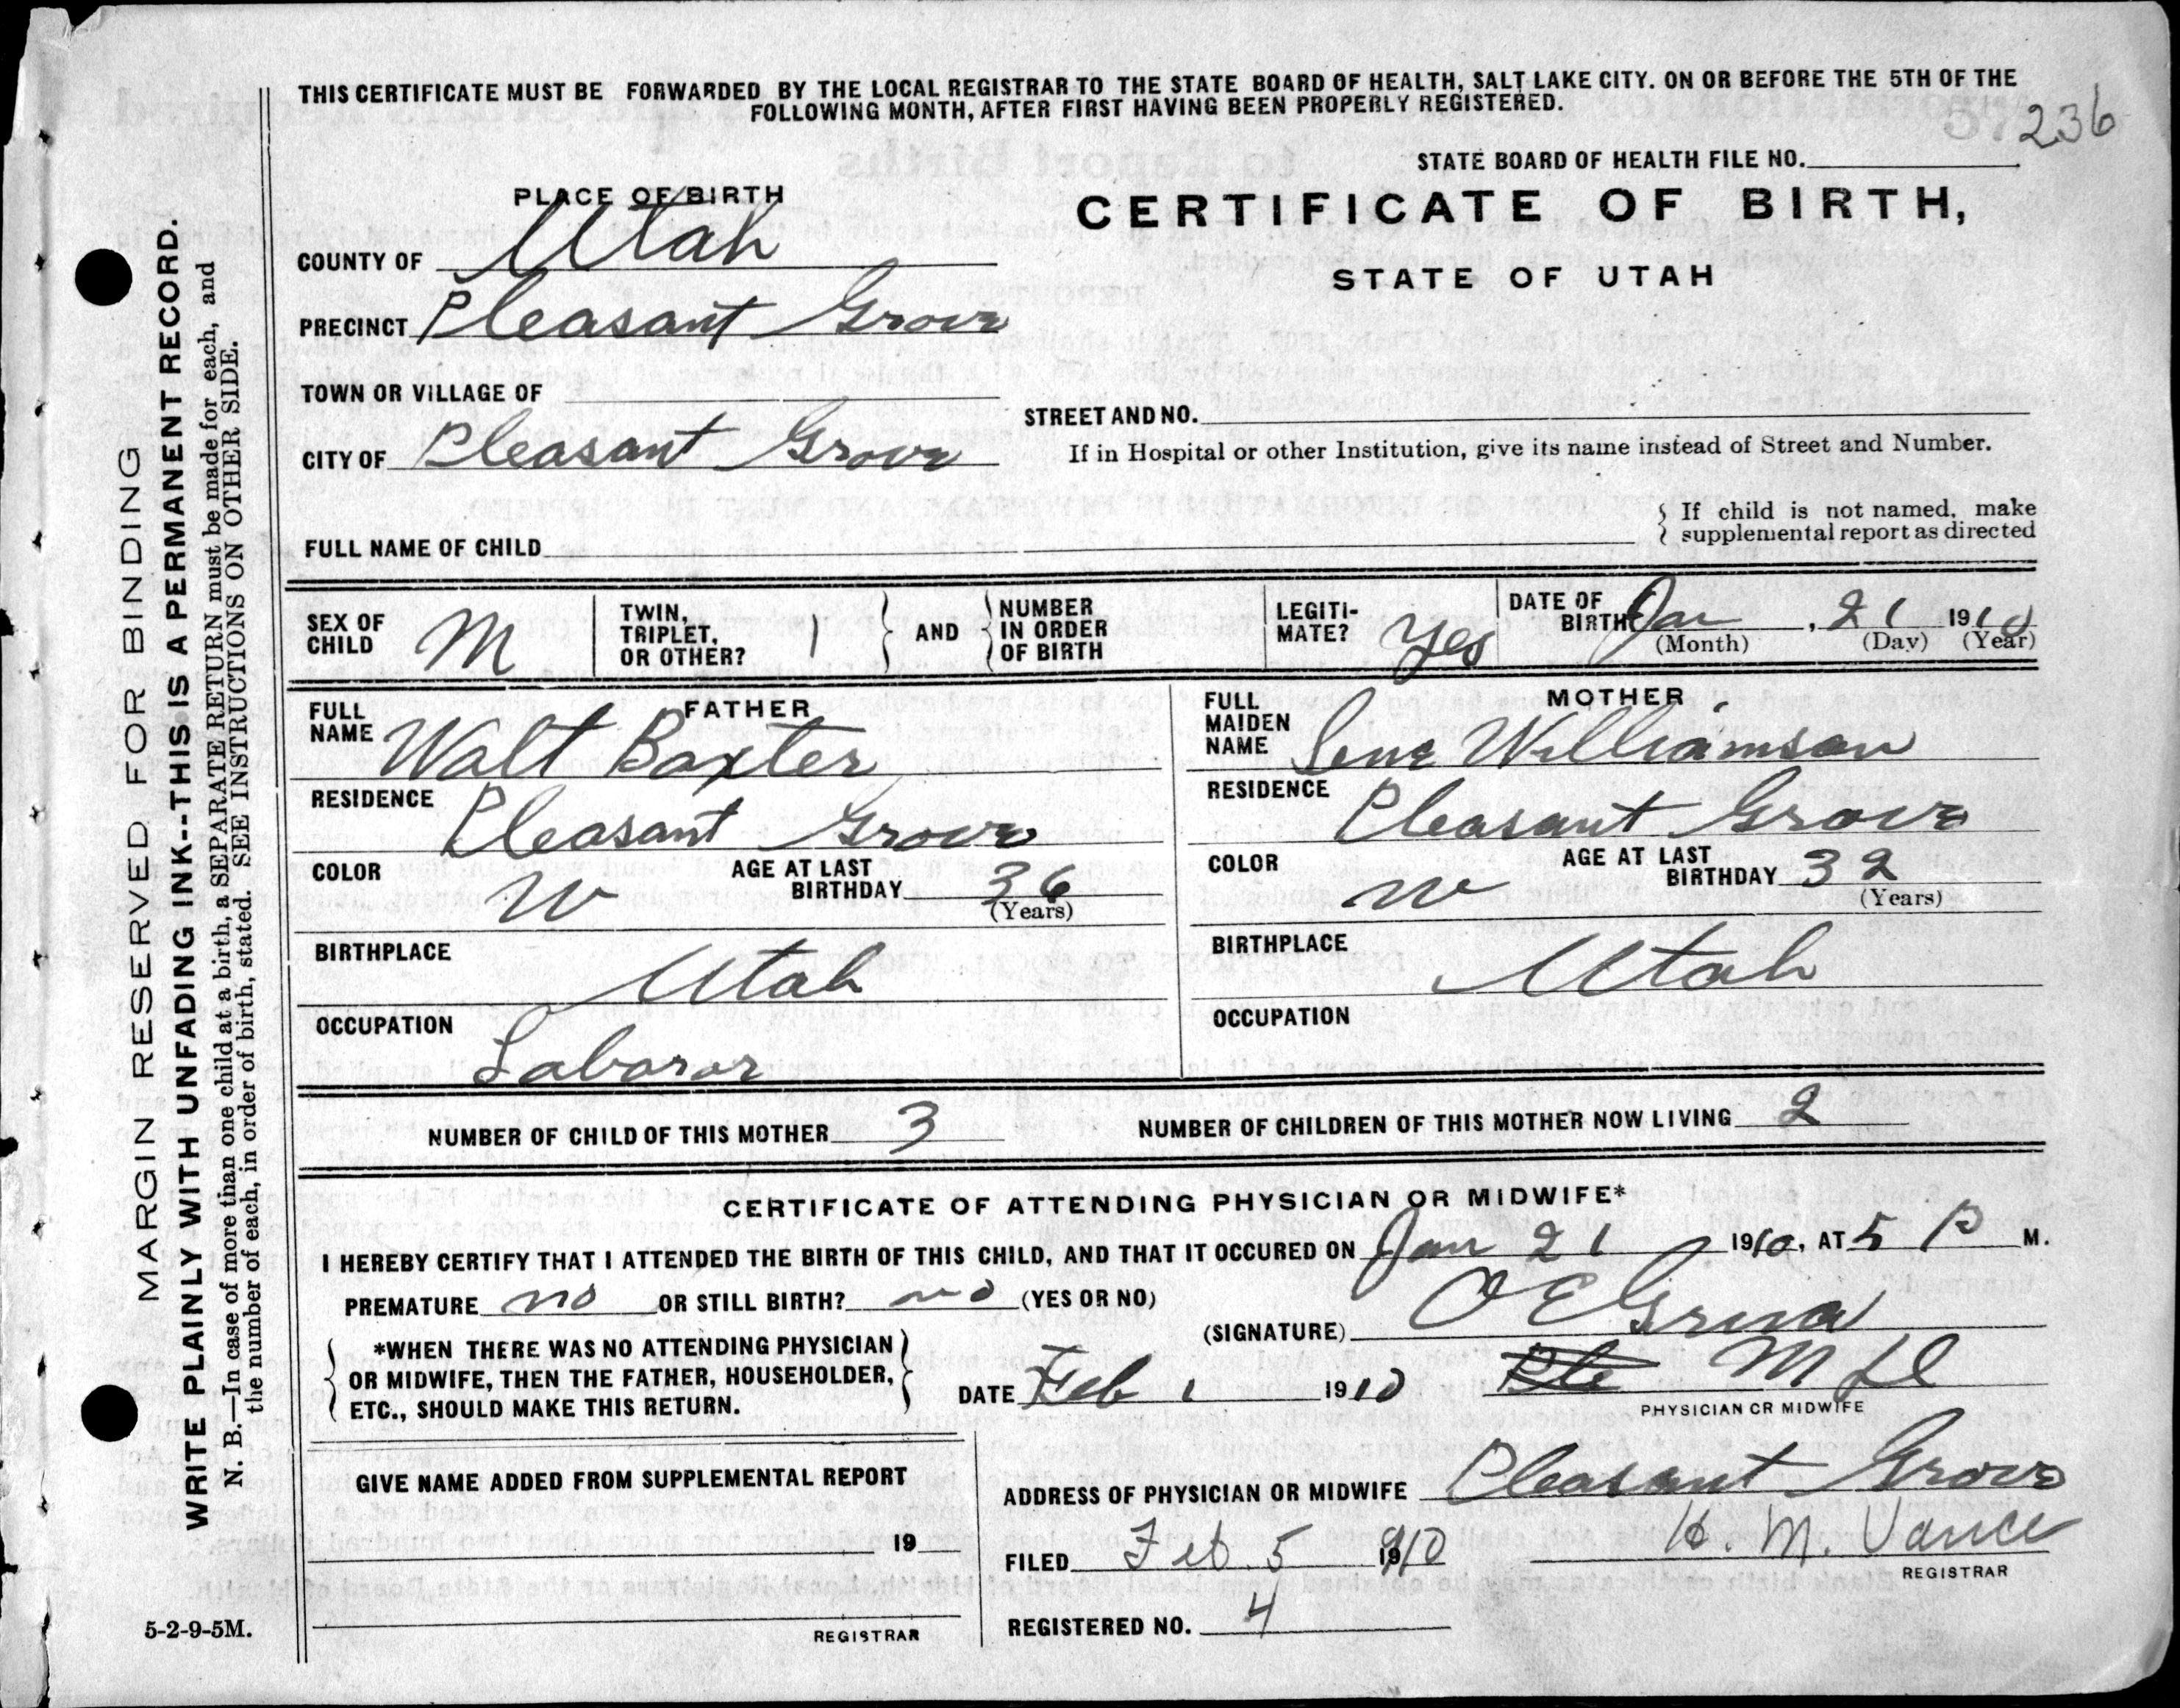 THIS CERTIFICATE MUST BE FORWARDED BY THE LOCAL REGISTRAR TO THE STATE BOARD OF HEALTH, SALT LAKE CITY. ON OR BEFORE THE 5TH OF THE
FOLLOWING MONTH, AFTER FIRST HAVING BEEN PROPERLY REGISTERED.
236
STATE BOARD OF HEALTH FILE NO.
PLACE OF BIRTH
CERTIFICATE OF BIRTH,
STATE OF UTAH
COUNTY OF Utah
PRECINCT Pleasant Grove
TOWN OR VILLAGE OF
STREET AND NO.
CITY OF Pleasant Grove
If in Hospital or other Institution, give its name instead of Street and Number.
FULL NAME OF CHILD
If child is not named, make
supplemental report as directed
SEX OF CHILD M
TWIN, TRIPLET, OR OTHER? 1
AND NUMBER IN ORDER OF BIRTH
LEGITI-MATE? Yes
DATE OF BIRTH Jan , 21 1910
(Month) (Day) (Year)
FATHER
FULL NAME Walt Baxter
RESIDENCE Pleasant Grove
COLOR W AGE AT LAST BIRTHDAY 36
(Years)
BIRTHPLACE Utah
OCCUPATION Laborer
MOTHER
FULL MAIDEN NAME Williamson
RESIDENCE Pleasant Grove
COLOR W AGE AT LAST BIRTHDAY 32
(Years)
BIRTHPLACE Utah
OCCUPATION
NUMBER OF CHILD OF THIS MOTHER 3
NUMBER OF CHILDREN OF THIS MOTHER NOW LIVING 2
CERTIFICATE OF ATTENDING PHYSICIAN OR MIDWIFE*
I HEREBY CERTIFY THAT I ATTENDED THE BIRTH OF THIS CHILD, AND THAT IT OCCURED ON Jan 21 1910, AT 5 P M.
PREMATURE no OR STILL BIRTH? no (YES OR NO)
(SIGNATURE) O E
*WHEN THERE WAS NO ATTENDING PHYSICIAN
OR MIDWIFE, THEN THE FATHER, HOUSEHOLDER,
ETC., SHOULD MAKE THIS RETURN.
DATE Feb 1 1910
M D
PHYSICIAN OR MIDWIFE
GIVE NAME ADDED FROM SUPPLEMENTAL REPORT
19
REGISTRAR
ADDRESS OF PHYSICIAN OR MIDWIFE Pleasant Grove
FILED Feb. 5 1910
H. M. Vance
REGISTRAR
REGISTERED NO. 4
5-2-9-5M.
MARGIN RESERVED FOR BINDING
WRITE PLAINLY WITH UNFADING INK--THIS IS A PERMANENT RECORD.
N. B.—In case of more than one child at a birth, a SEPARATE RETURN must be made for each, and
the number of each, in order of birth, stated. SEE INSTRUCTIONS ON OTHER SIDE.